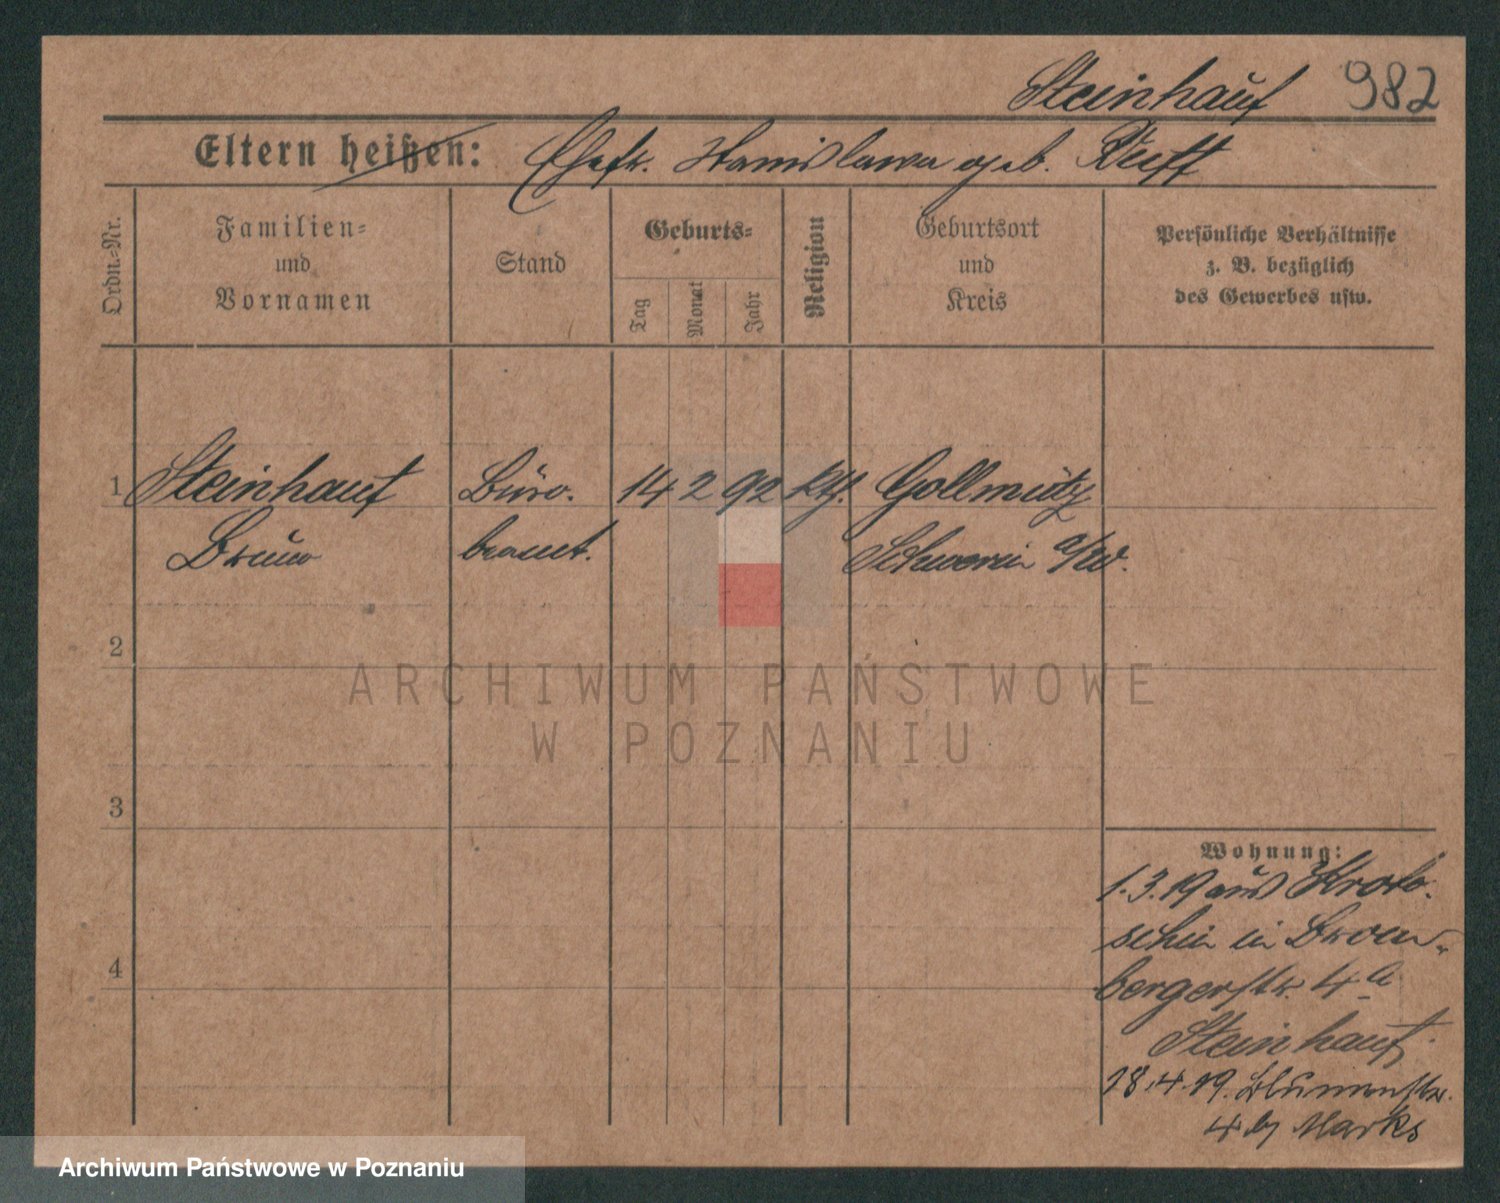 Steinhauf 982
Eltern heißen: Ehefr. Stanislawa geb.
Ordn.-Nr.
Familien-
und
Vornamen
Stand
Geburts-
Tag
Monat
Jahr
Religion
Geburtsort
und
Kreis
Persönliche Verhältnisse
z. B. bezüglich
des Gewerbes usw.
1 Steinhauf Büro. 14 2 92 kth. Gollmütz
Bruno beamt. Schwerin a/W.
2
3
4
Wohnung:
1.3.19 aus Kroto-
schin in Brom-
bergerstr. 4a
Steinhauf
28.4.19. Blumenstr.
4 by Marks
ARCHIWUM PAŃSTWOWE
W POZNANIU
Archiwum Państwowe w Poznaniu